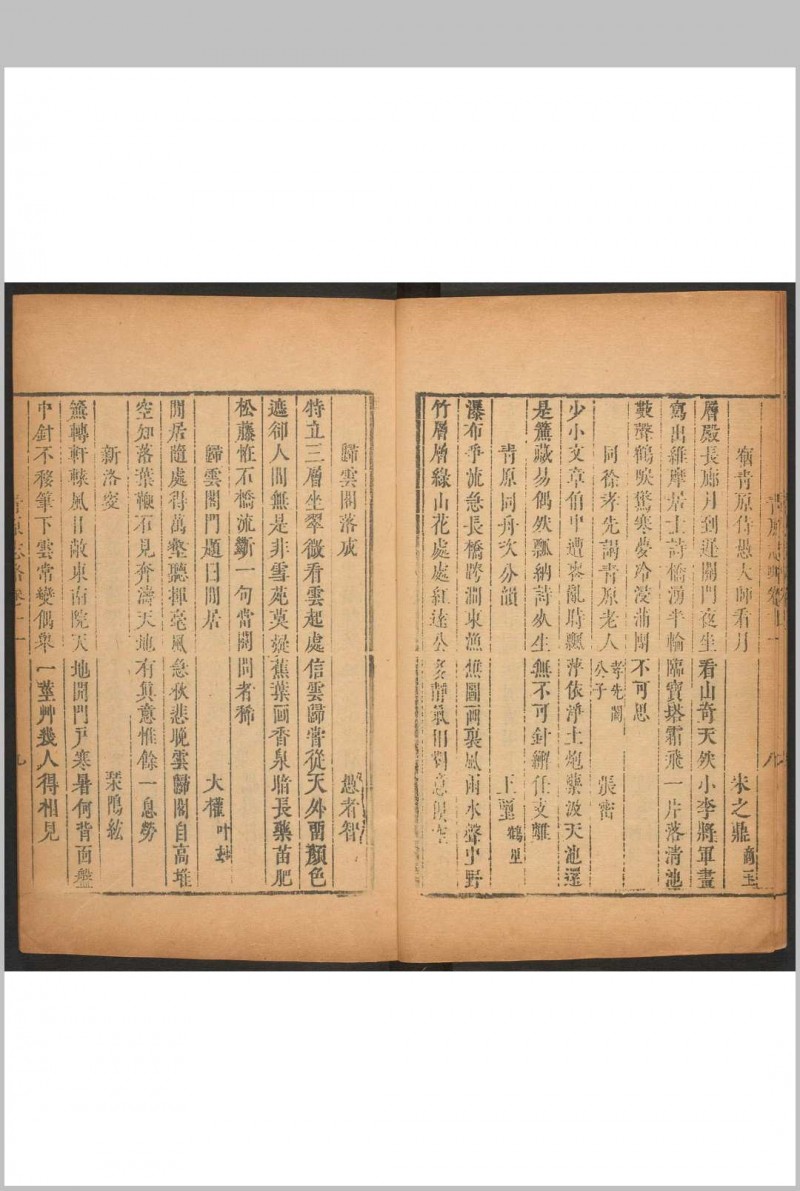 青原志略卷十一 八
宿青原侍愚大師看月 朱之鼎
層殿長廊月到遲關門夜坐看山奇天然小李將軍畫
寫出維摩居士詩橋湧半輪臨寶塔霜飛一片落清池
數聲鶴唳驚寒夢冷浸蒲團不可思
同徐孝先謁青原老人 孝先閣公子 張密
少小文章伯中遭喪亂時飄萍依淨土炮藥汲天池還
是簏藏易偶然瓢納詩矢生無不可針綱任支離
青原同舟次分韻 王
瀑布爭流急長橋跨澗東漁樵圖畫裏風雨水聲中野
竹層層綠山花處處紅遠公多靜氣相對意
歸雲閣落成 愚者智
特立三層坐翠微看雲起處信雲歸嘗從天外畱顏色
遮卻人間無是非雪苑莫疑蕉葉画香泉暗長藥苗肥
松藤恠石橋流斷一句當閣問者稀
歸雲閣門題曰閒居 大權
閒居隨處得萬壑聽揮毫風急秋悲晚雲歸閣自高堆
空知落葉鞭石見奔濤天地有眞意惟餘一息勞
新洛窔
無轉軒轅風日敵東南院天地開門戸寒暑何背面盤
中針不移筆下雲常變偶舉一莖艸幾人得相見
青原志略卷十一 九